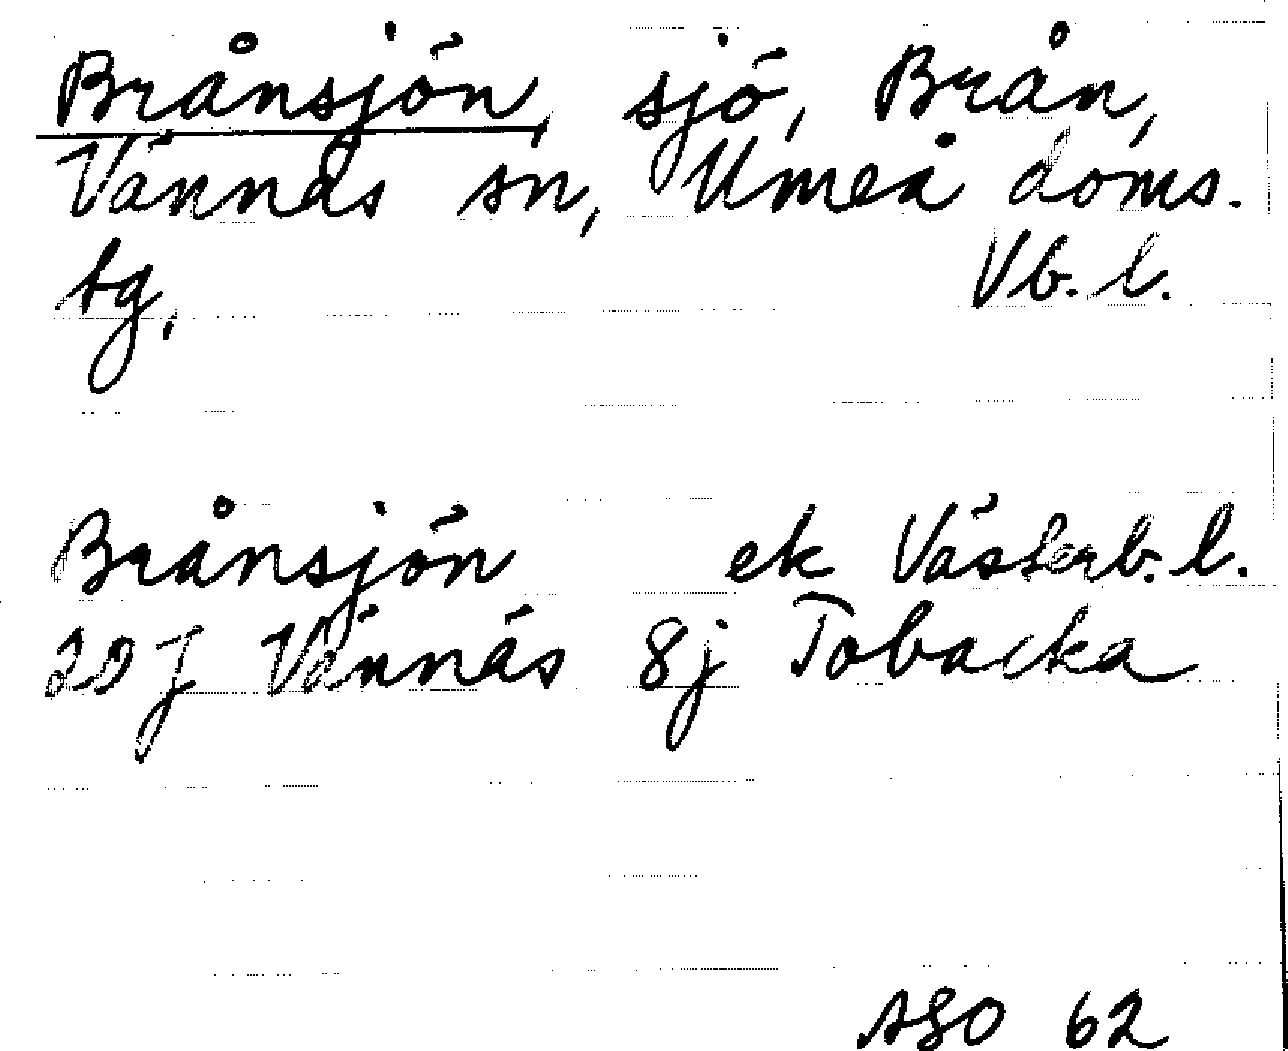 Brånsjön, sjö, Brån,
Vännäs sn, Umeå doms.
tg, Vb. l.
Brånsjön ek Västerb. l.
20 J Vännäs 8j Tobacka
ASO 62